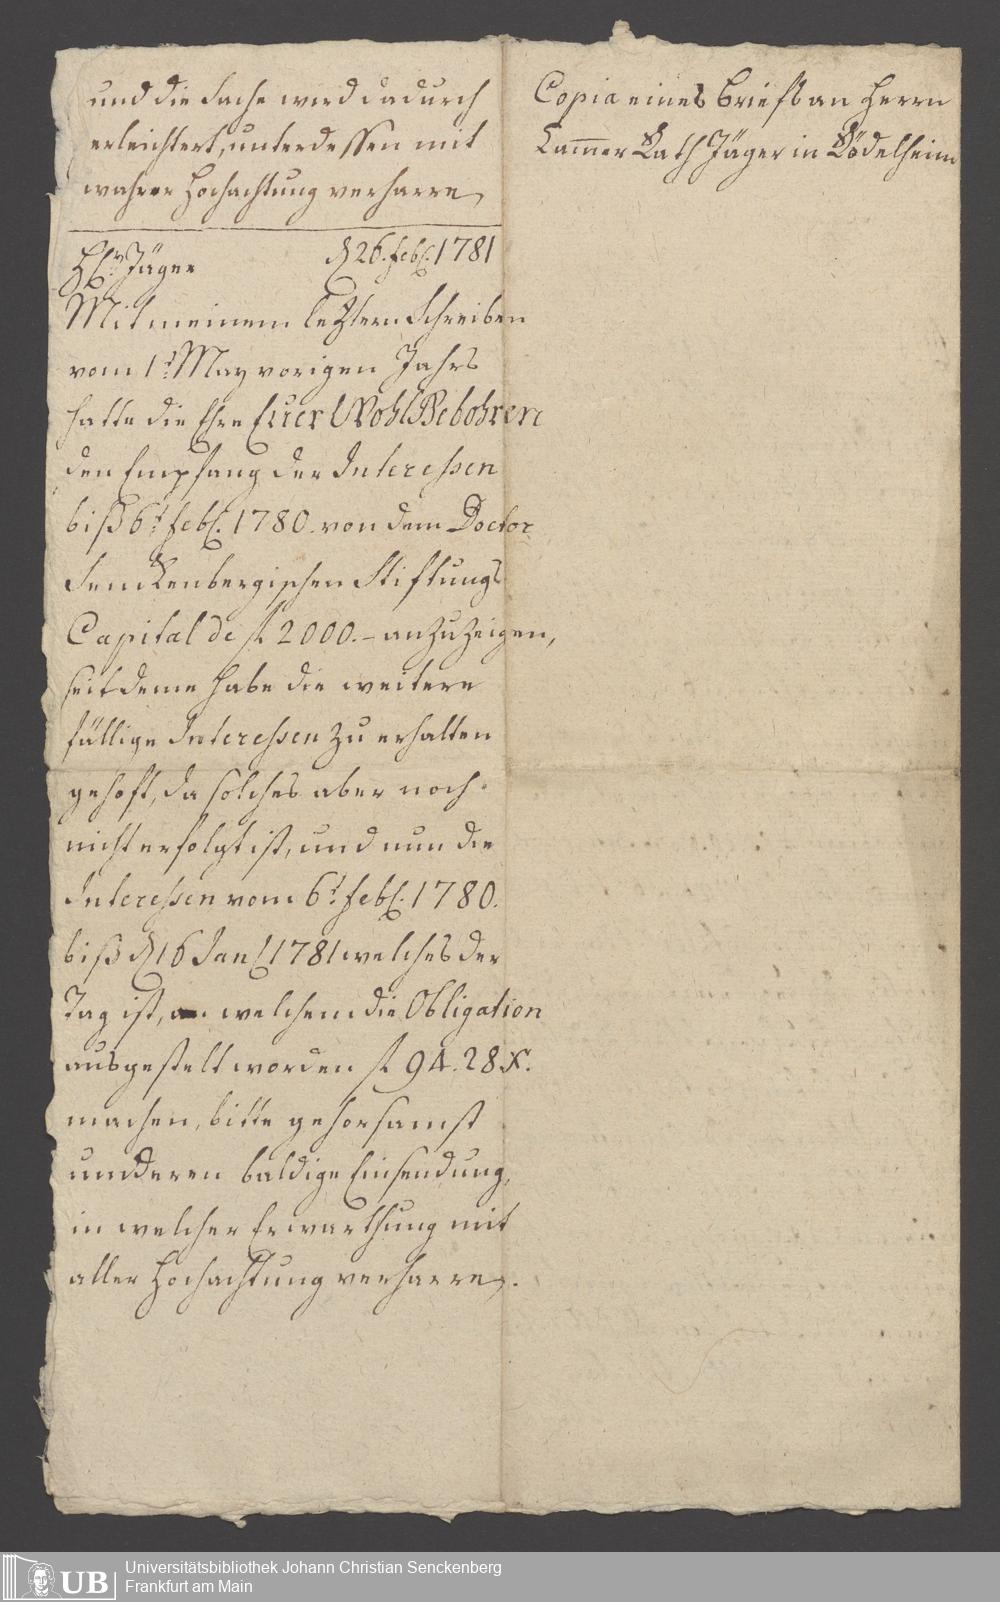 und die Sache wird dadurch
erleichtert, unterdessen mit
wahrer Hochachtung verharre
Jäger d 26. febr. 1781
Mit meinem leztern Schreiben
vom 1t May vorigen Jahrs
hatte die Ehre Euer WohlGebohren
den Empfang der Interessen
biß 6t. febr. 1780. von dem Doctor
Senckenbergischen Stiftungs
Capital de fl 2000.– anzuzeigen,
seit deme habe die weitere
fällige Interessen zu erhalten
gehoft, da solches aber noch
nicht erfolgt ist, und nun die
Interessen vom 6t. febr. 1780.
biß d 16 Janr 1781 welches der
Tag ist, an welchem die Obligation
ausgestelt worden fl 94.28 X.
machen, bitte gehorsamst
um deren baldige Einsendung,
in welcher Erwarthung mit
aller Hochachtung verharre.
Copia eines briefs an Herrn
Cammer Rath Jäger in Rödelheim
Universitätsbibliothek Johann Christian Senckenberg
UB Frankfurt am Main